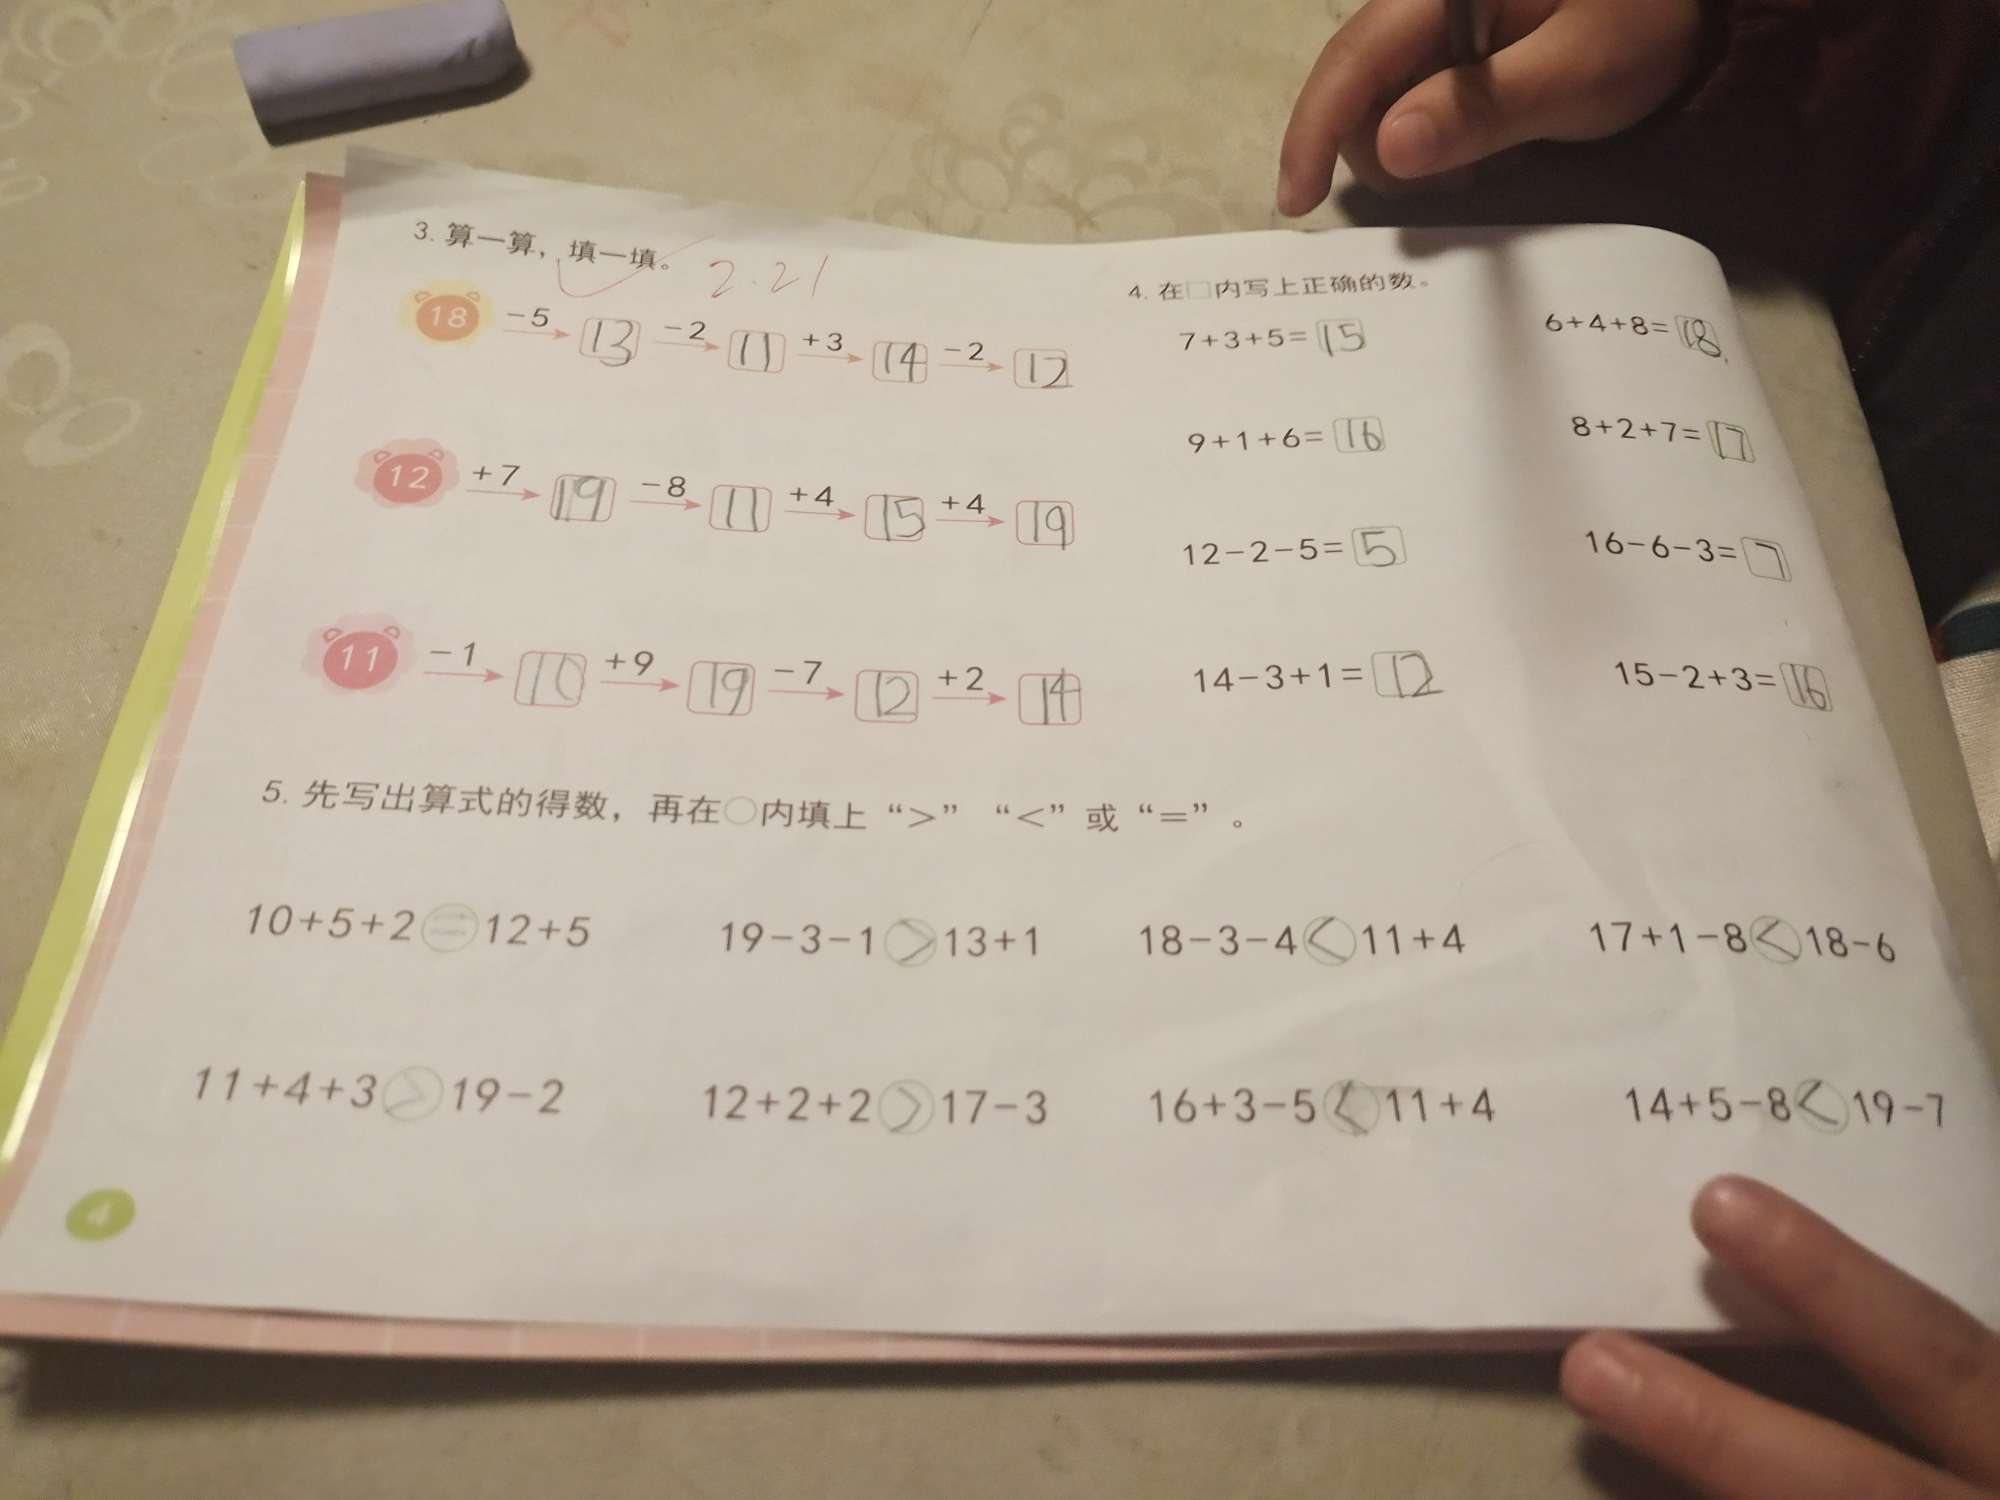 3. 算一算，填一填。 2.21
18 -5 13 -2 11 +3 14 -2 12
12 +7 19 -8 11 +4 15 +4 19
11 -1 10 +9 19 -7 12 +2 14
4. 在□内写上正确的数。
7+3+5=15 6+4+8=18
9+1+6=16 8+2+7=17
12-2-5=5 16-6-3=7
14-3+1=12 15-2+3=16
5. 先写出算式的得数，再在○内填上“>”“<”或“=”。
10+5+2=12+5 19-3-1>13+1 18-3-4<11+4 17+1-8<18-6
11+4+3>19-2 12+2+2>17-3 16+3-5<11+4 14+5-8<19-7
4